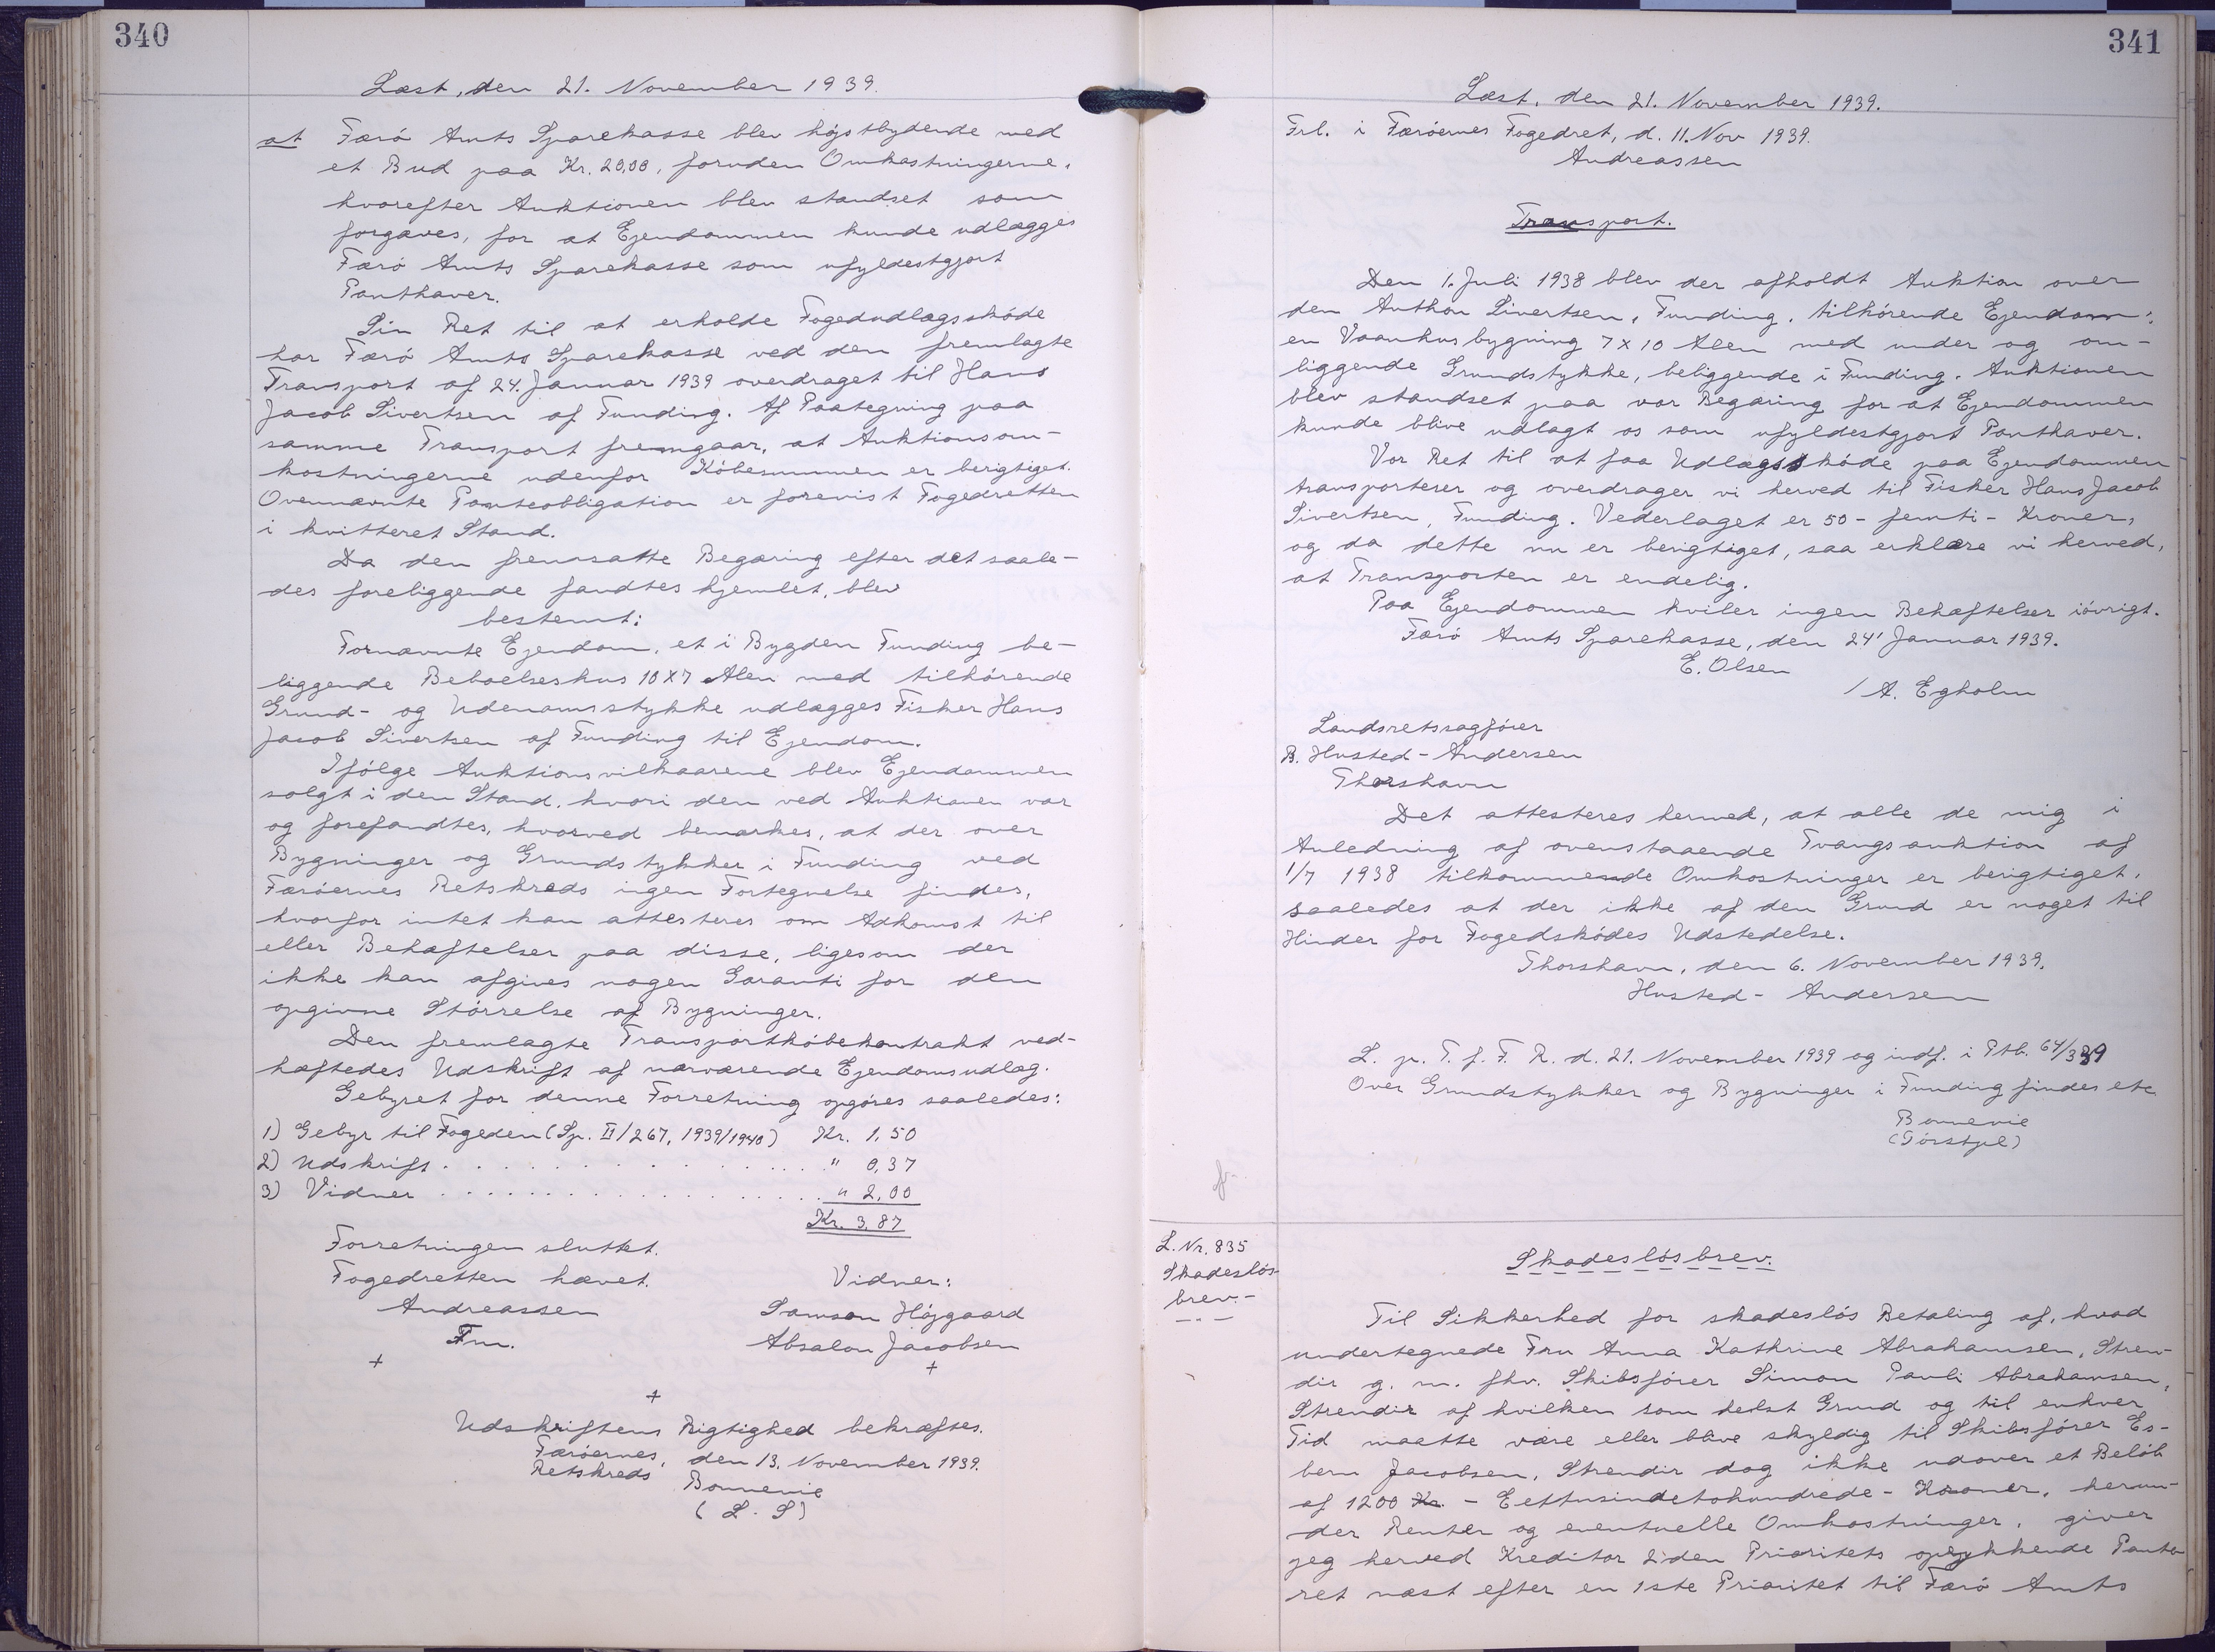 340
Læst, den 21. November 1939.
at Færø Amts Sparekasse blev højstbydende med
et Bud paa Kr. 20,00, foruden Omkostningerne,
hvorefter Auktionen blev standset som
forgæves, for at Ejendommen kunde udlægges
Færø Amts Sparekasse som ufyldestgjort
Panthaver.
Sin Ret til at erholde Fogedudlægsskøde
har Færø Amts Sparekasse ved den fremlagte
Transport af 24. Januar 1939 overdraget til Hans
Jacob Sivertsen af Funding. Af Paategning paa
samme Transport fremgaar, at Auktionsom-
kostningerne udenfor Købesummen er berigtiget.
Ovennævnte Panteobligation er forevist Fogedretten
i kvitteret Stand.
Da den fremsatte Begæring efter det saale-
des foreliggende fandtes hjemlet, blev
bestemt:
Fornævnte Ejendom, et i Bygden Funding be-
liggende Beboelseshus 10 x 7 Alen med tilhørende
Grund- og Udenomsstykke udlægges Fisker Hans
Jacob Sivertsen af Funding til Ejendom.
Ifølge Auktionsvilkaarene blev Ejendommen
solgt i den Stand, hvori den ved Auktionen var
og forefandtes, hvorved bemærkes, at der over
Bygninger og Grundstykker i Funding ved
Færøernes Retskreds ingen Fortegnelse findes,
hvorfor intet kan attesteres om Adkomst til
eller Behæftelser paa disse, ligesom der
ikke kan afgives nogen Garanti for den
opgivne Størrelse af Bygninger.
Den fremlagte Transportkøbekontrakt ved-
hæftedes Udskrift af nærværende Ejendomsudlæg.
Gebyret for denne Forretning opgøres saaledes:
1) Gebyr til Fogeden (Sp. II/267, 1939/1940) Kr. 1,50
2) Udskrift . . . . . . . . . . " 0,37
3) Vidner . . . . . . . . . . " 2,00
Kr. 3,87
Forretningen sluttet.
Fogedretten hævet. Vidner:
Andreassen Samson Højgaard
Fm. Absalon Jacobsen
+ +
+
Udskriftens Rigtighed bekræftes.
Færøernes Retskreds, den 13. November 1939.
Bonnevie
(L. S)
341
Læst, den 21. November 1939.
Frl. i Færøernes Fogedret, d. 11. Nov 1939.
Andreassen
Transport.
Den 1. Juli 1938 blev der afholdt Auktion over
den Anthon Sivertsen, Funding, tilhørende Ejendom:
en Vaanhusbygning 7 x 10 Alen med under og om-
liggende Grundstykke, beliggende i Funding. Auktionen
blev standset paa vor Begæring for at Ejendommen
kunde blive udlagt os som ufyldestgjort Panthaver.
Vor Ret til at faa Udlægsskøde paa Ejendommen
transporterer og overdrager vi herved til Fisker Hans Jacob
Sivertsen, Funding. Vederlaget er 50 - femti - Kroner,
og da dette nu er berigtiget, saa erklære vi herved,
at Transporten er endelig.
Paa Ejendommen hviler ingen Behæftelser iøvrigt.
Færø Amts Sparekasse, den 24' Januar 1939.
E. Olsen
/ A. Egholm
Landsretssagfører
B. Husted-Andersen
Thorshavn
Det attesteres hermed, at alle de mig i
Anledning af ovenstaaende Tvangsauktion af
1/7 1938 tilkommende Omkostninger er berigtiget,
saaledes at der ikke af den Grund er noget til
Hinder for Fogedskødes Udstedelse.
Thorshavn, den 6. November 1939.
Husted-Andersen
L. p. T. f. F. R. d. 21. November 1939 og indf. i Ptb. 64/339
Over Grundstykker og Bygninger i Funding findes etc
Bonnevie
L. Nr. 835
Skadesløs-
brev.-
Skadesløsbrev.
Til Sikkerhed for skadesløs Betaling af, hvad
undertegnede Fru Anna Kathrine Abrahamsen, Stren-
dir g. m. fhv. Skibsfører Simon Pauli Abrahamsen,
Strendir af hvilken som helst Grund og til enhver
Tid maatte være eller blive skyldig til Skibsfører Es-
bern Jacobsen, Strendir dog ikke udover et Beløb
af 1200 Kr. - Eettusindetohundrede - Kroner, herun-
der Renter og eventuelle Omkostninger, giver
jeg herved Kreditor 2'den Prioritets oprykkende Pante-
ret næst efter en 1ste Prioritet til Færø Amts